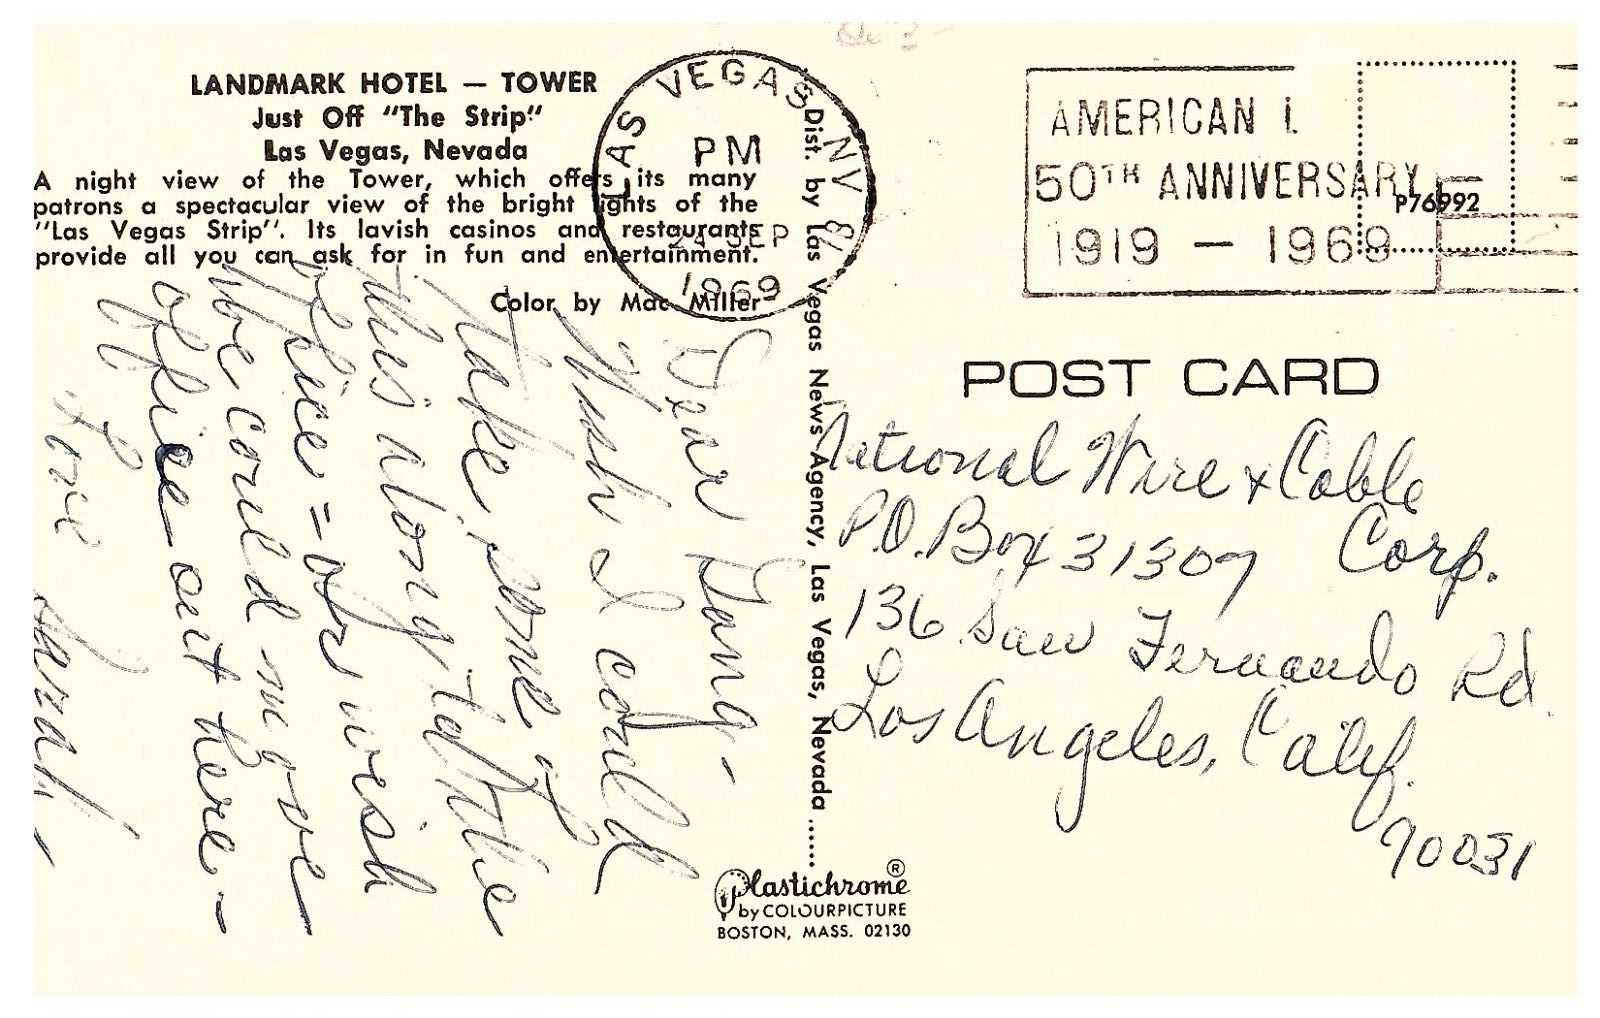 LANDMARK HOTEL — TOWER
Just Off "The Strip"
Las Vegas, Nevada
A night view of the Tower, which offers its many
patrons a spectacular view of the bright lights of the
"Las Vegas Strip". Its lavish casinos and restaurants
provide all you can ask for in fun and entertainment.
Color by Mac Miller
LAS VEGAS, NV 89
PM
24 SEP
1969
AMERICAN L
50TH ANNIVERSARY
1919 — 1969
P76992
Dist. by Las Vegas News Agency, Las Vegas, Nevada ......
POST CARD
Dear Gang -
Wish I could
take some of
this along to the
office = or wish
we could move
office out here -
Love
Sarah
National Wire & Cable
Corp.
P.O. Box 31307
136 San Fernando Rd.
Los Angeles, Calif.
90031
Plastichrome ®
by COLOURPICTURE
BOSTON, MASS. 02130